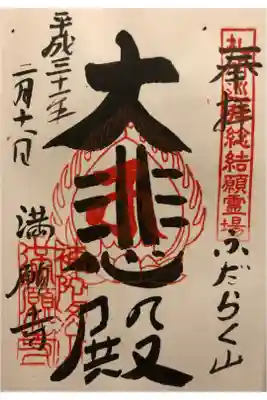 総結願霊場
奉拝
ふだらく山
大悲殿
満願寺
平成三十一年
二月十六日